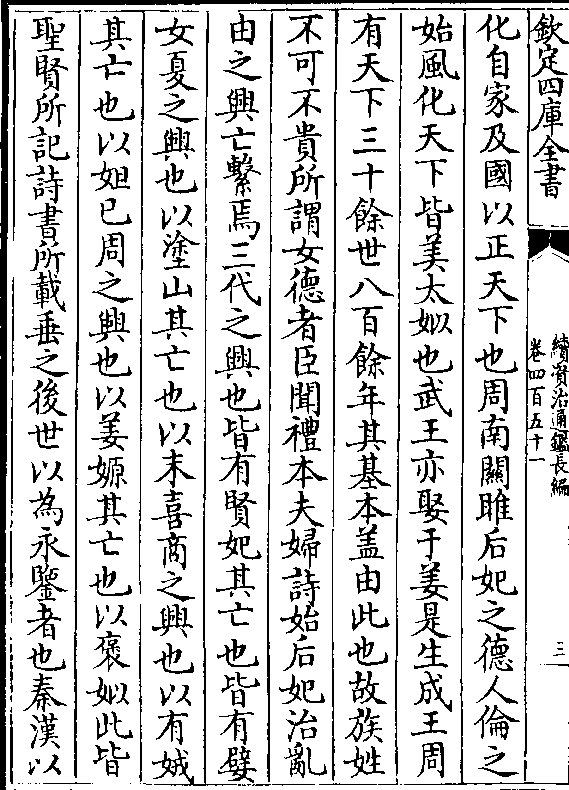 欽定四庫全書
續資治通鑑長編
卷四百五十一
三
化自家及國以正天下也周南關雎后妃之德人倫之
始風化天下皆美太姒也武王亦娶于姜是生成王周
有天下三十餘世八百餘年其基本盖由此也故族姓
不可不貴所謂女德者臣聞禮本夫婦詩始后妃治亂
由之興亡繫焉三代之興也皆有賢妃其亡也皆有嬖
女夏之興也以塗山其亡也以末喜商之興也以有娀
其亡也以妲已周之興也以姜嫄其亡也以褒姒此皆
聖賢所記詩書所載垂之後世以為永鑒者也秦漢以